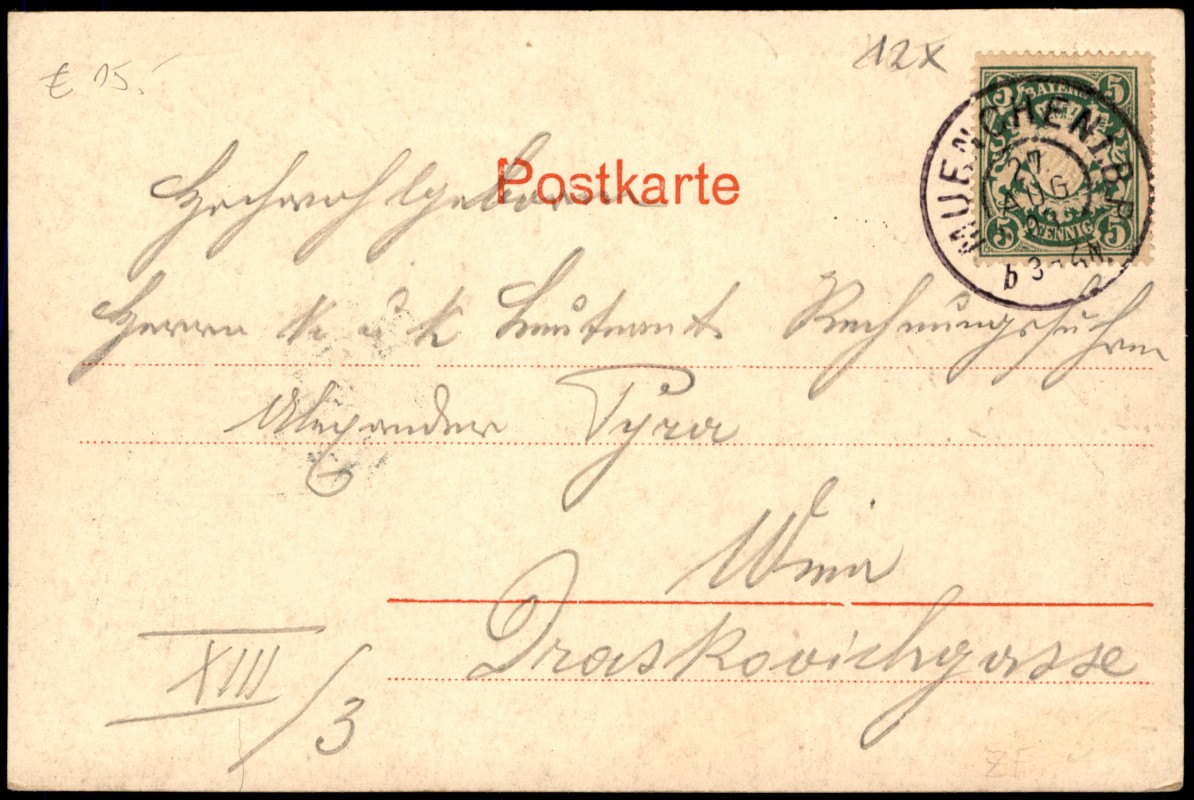 € 15.-
12x
5 BAYERN 5
5 PFENNIG 5
MUENCHEN 1 B.P.
27
AUG
b 3-4 N.
Postkarte
Hochwohlgeboren
Herrn K u K Leutnant Rechnungsführer
Alexander Pyra
Wien
Draskovichgasse
XIII/3